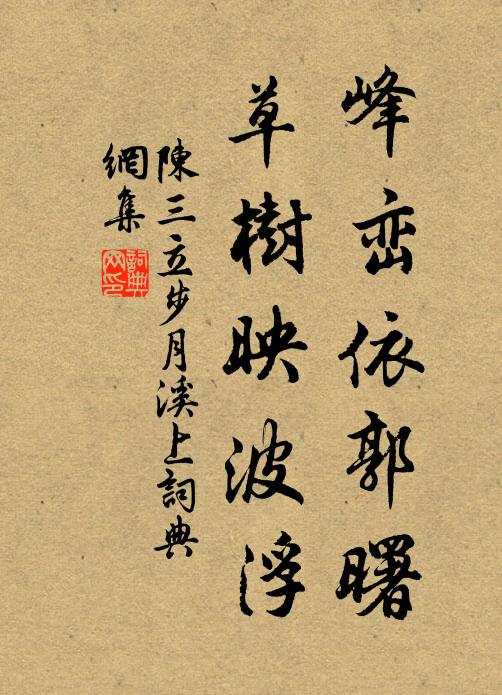 峰峦依郭曙
草樹映波浮
陳三立步月溪上詞典
網集
詞典
网印